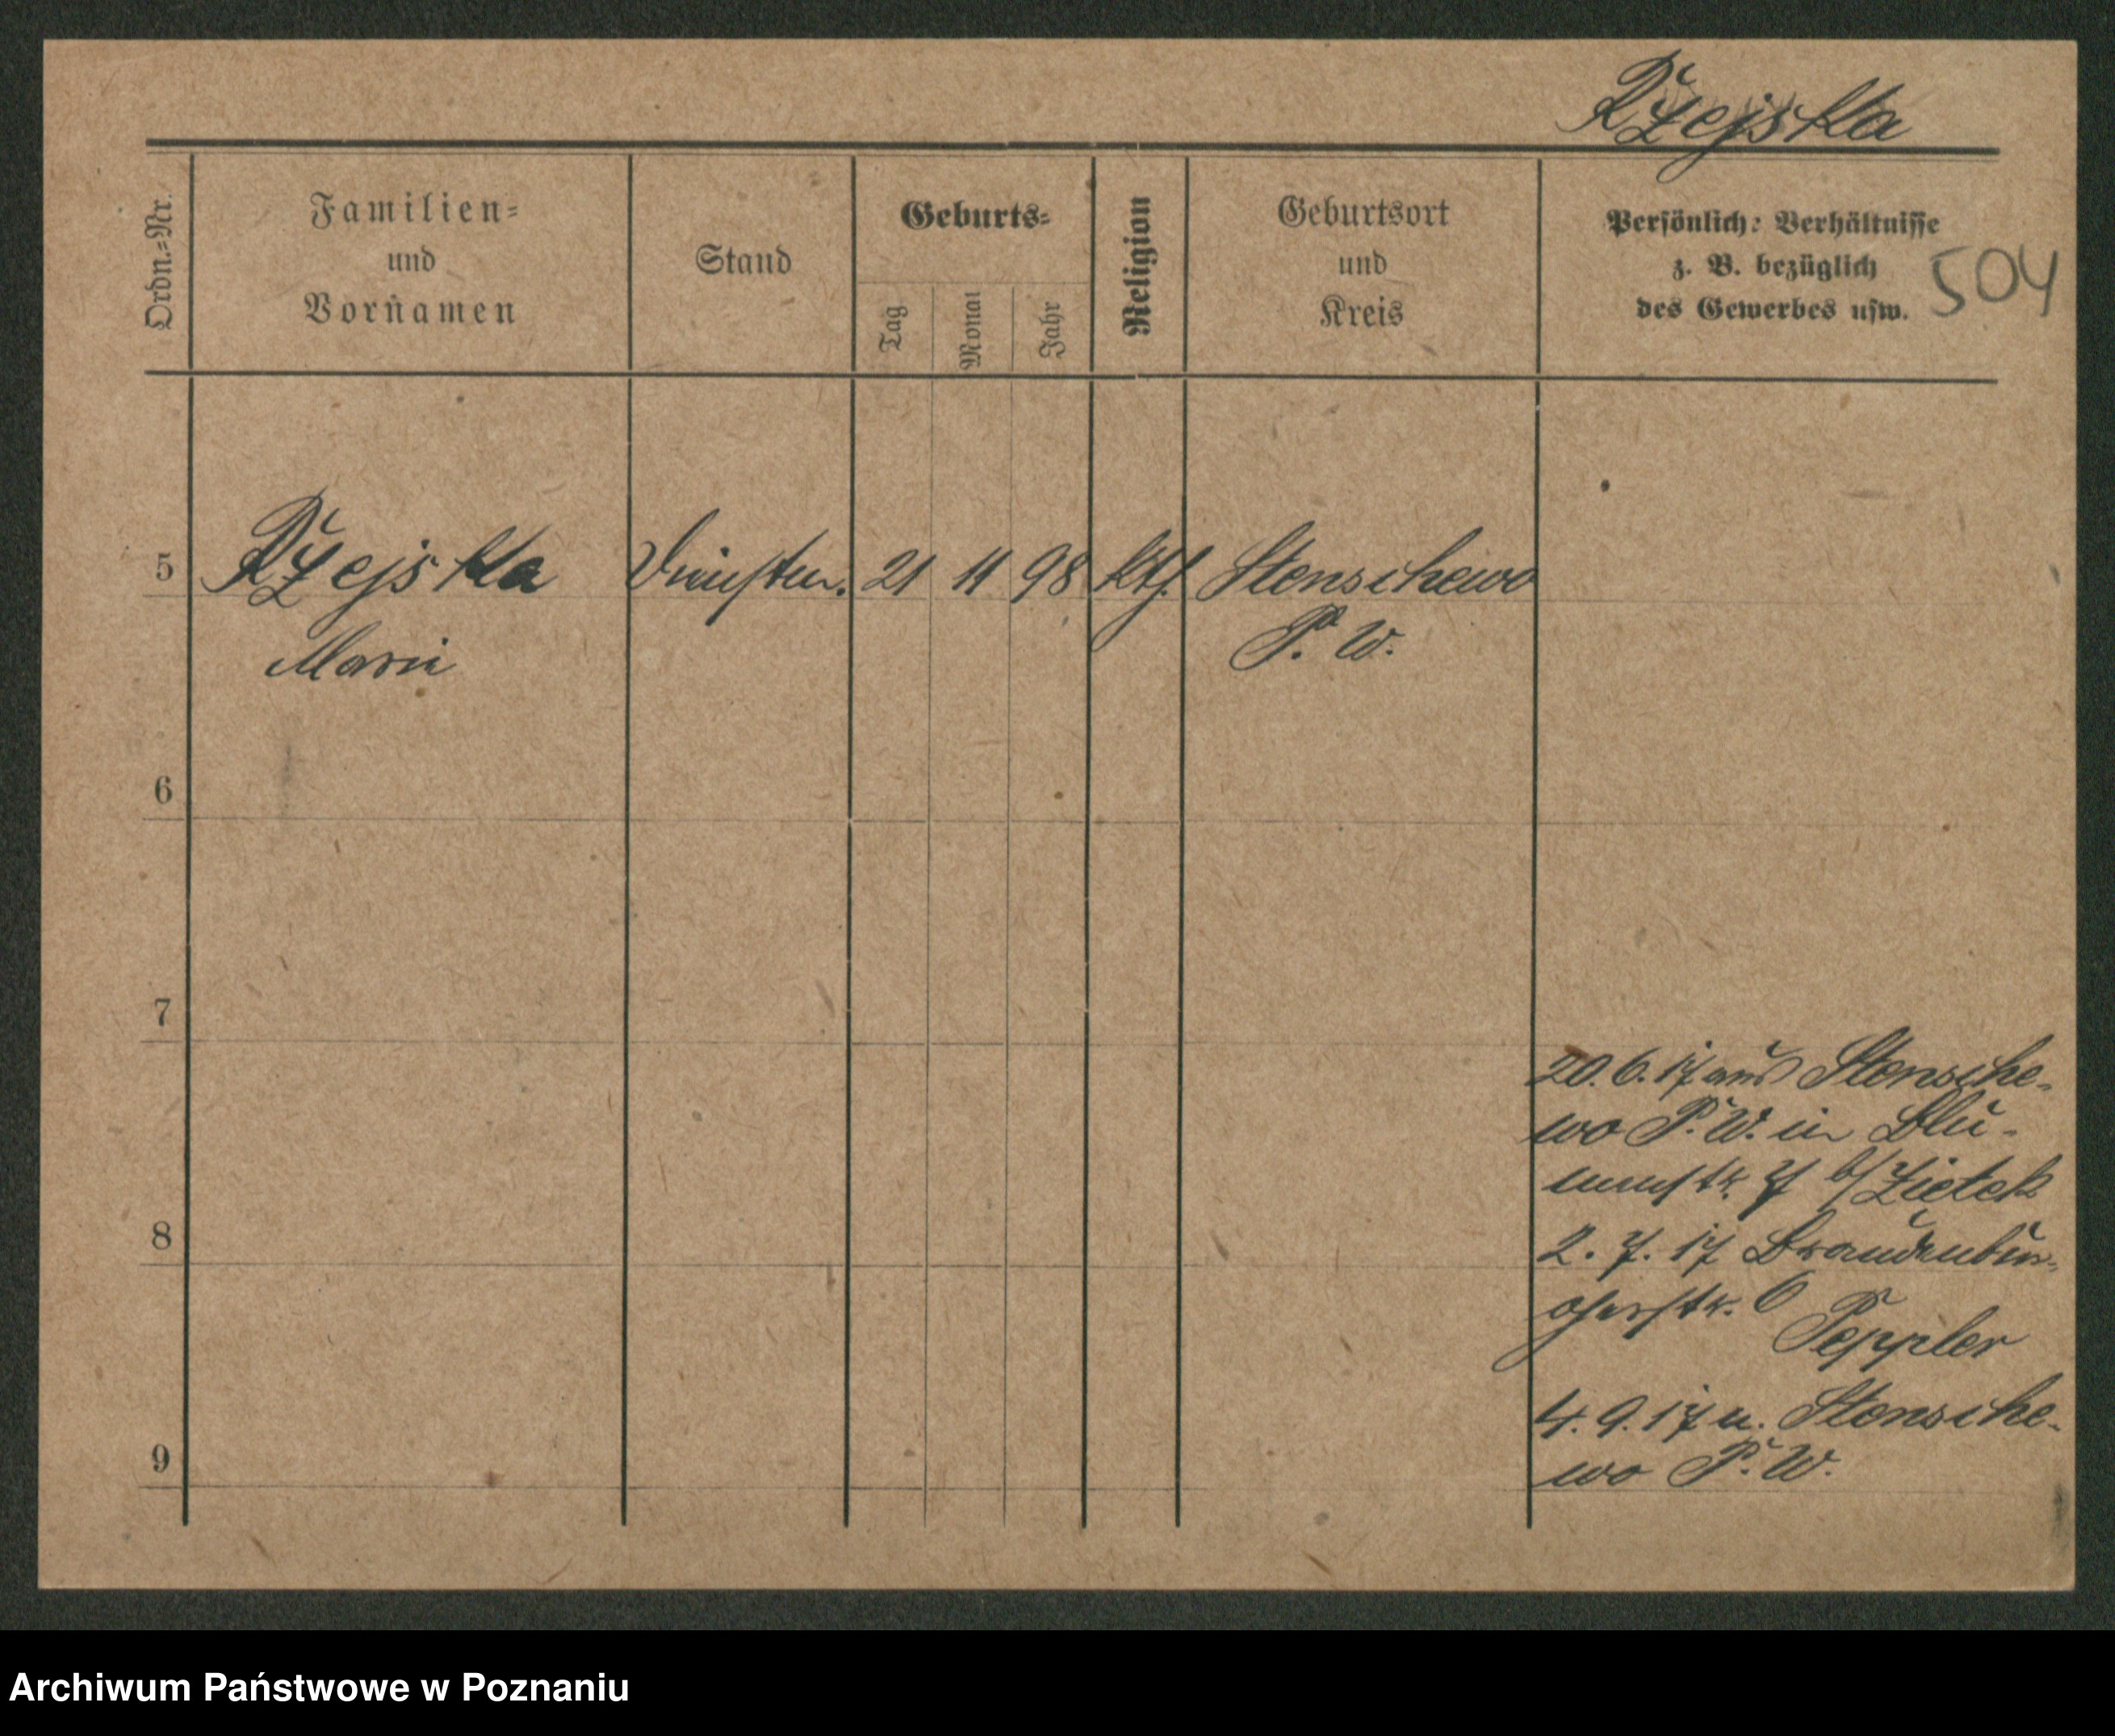 Rzejska
Ordn.=Nr.
Familien=
und
Vornamen
Stand
Geburts=
Tag
Monat
Jahr
Religion
Geburtsort
und
Kreis
Persönlich: Verhältnisse
z. B. bezüglich
des Gewerbes usw.
504
5 Rzejska 21 11 98 kth. Stenschewo
Marie P. W.
6
7
20.6.17 aus Stensche-
wo P. W. in Blu-
menstr. 7 b/ Zietek
8
2. 7. 17 Brandenbur-
gerstr. 6
Peppler
4. 9. 17 n. Stensche-
wo P. W.
9
Archiwum Państwowe w Poznaniu